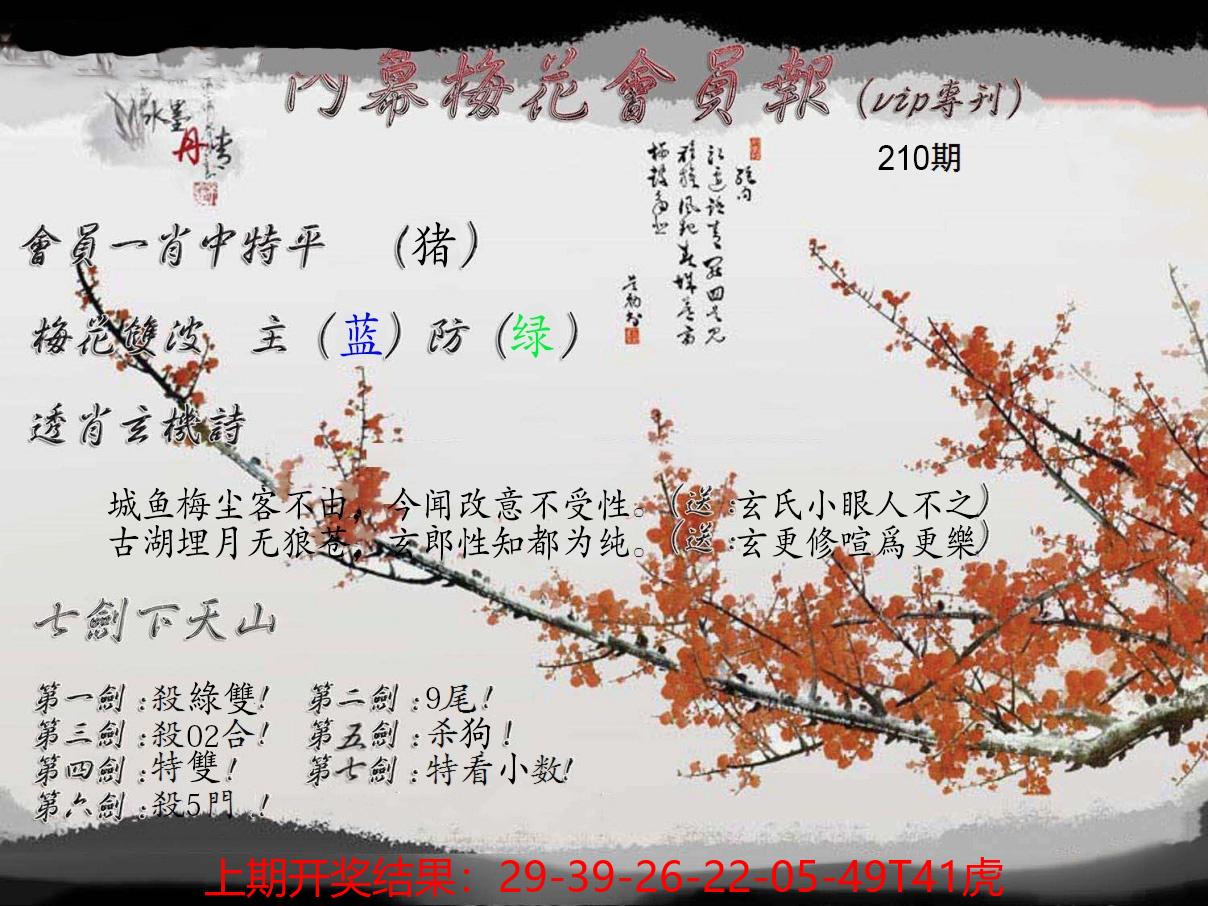 內幕梅花會員報(vip專刊)
水墨
丹情
210期
會員一肖中特平 (猪)
梅花雙波 主(蓝)防(绿)
透肖玄機詩
城鱼梅尘客不由，今闻改意不受性。(送:玄氏小眼人不之)
古湖埋月无狼苍，玄郎性知都为纯。(送:玄更修喧爲更樂)
七劍下天山
第一劍:殺綠雙! 第二劍:9尾!
第三劍:殺02合! 第五劍:杀狗!
第四劍:特雙! 第七劍:特看小数!
第六劍:殺5門!
上期开奖结果：29-39-26-22-05-49T41虎